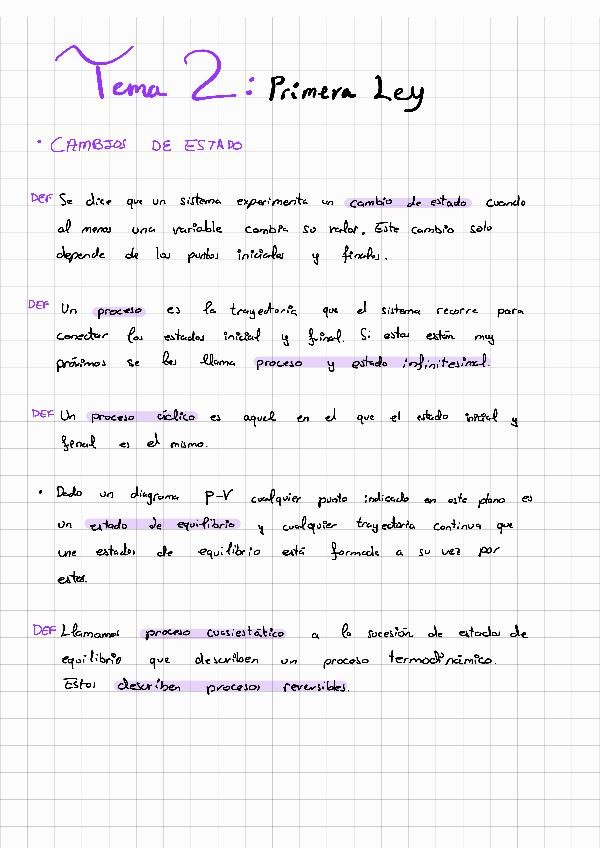 Tema 2: Primera Ley
• CAMBIOS DE ESTADO
DEF Se dice que un sistema experimenta un cambio de estado cuando
al menos una variable cambia su valor. Este cambio solo
depende de los puntos iniciales y finales.
DEF Un proceso es la trayectoria que el sistema recorre para
conectar los estados inicial y final. Si estos están muy
próximos se les llama proceso y estado infinitesimal.
DEF Un proceso cíclico es aquel en el que el estado inicial y
final es el mismo.
• Dado un diagrama P-V cualquier punto indicado en este plano es
un estado de equilibrio y cualquier trayectoria continua que
une estados de equilibrio está formada a su vez por
estos.
DEF Llamamos proceso cuasiestático a la sucesión de estados de
equilibrio que describen un proceso termodinámico.
Estos describen procesos reversibles.